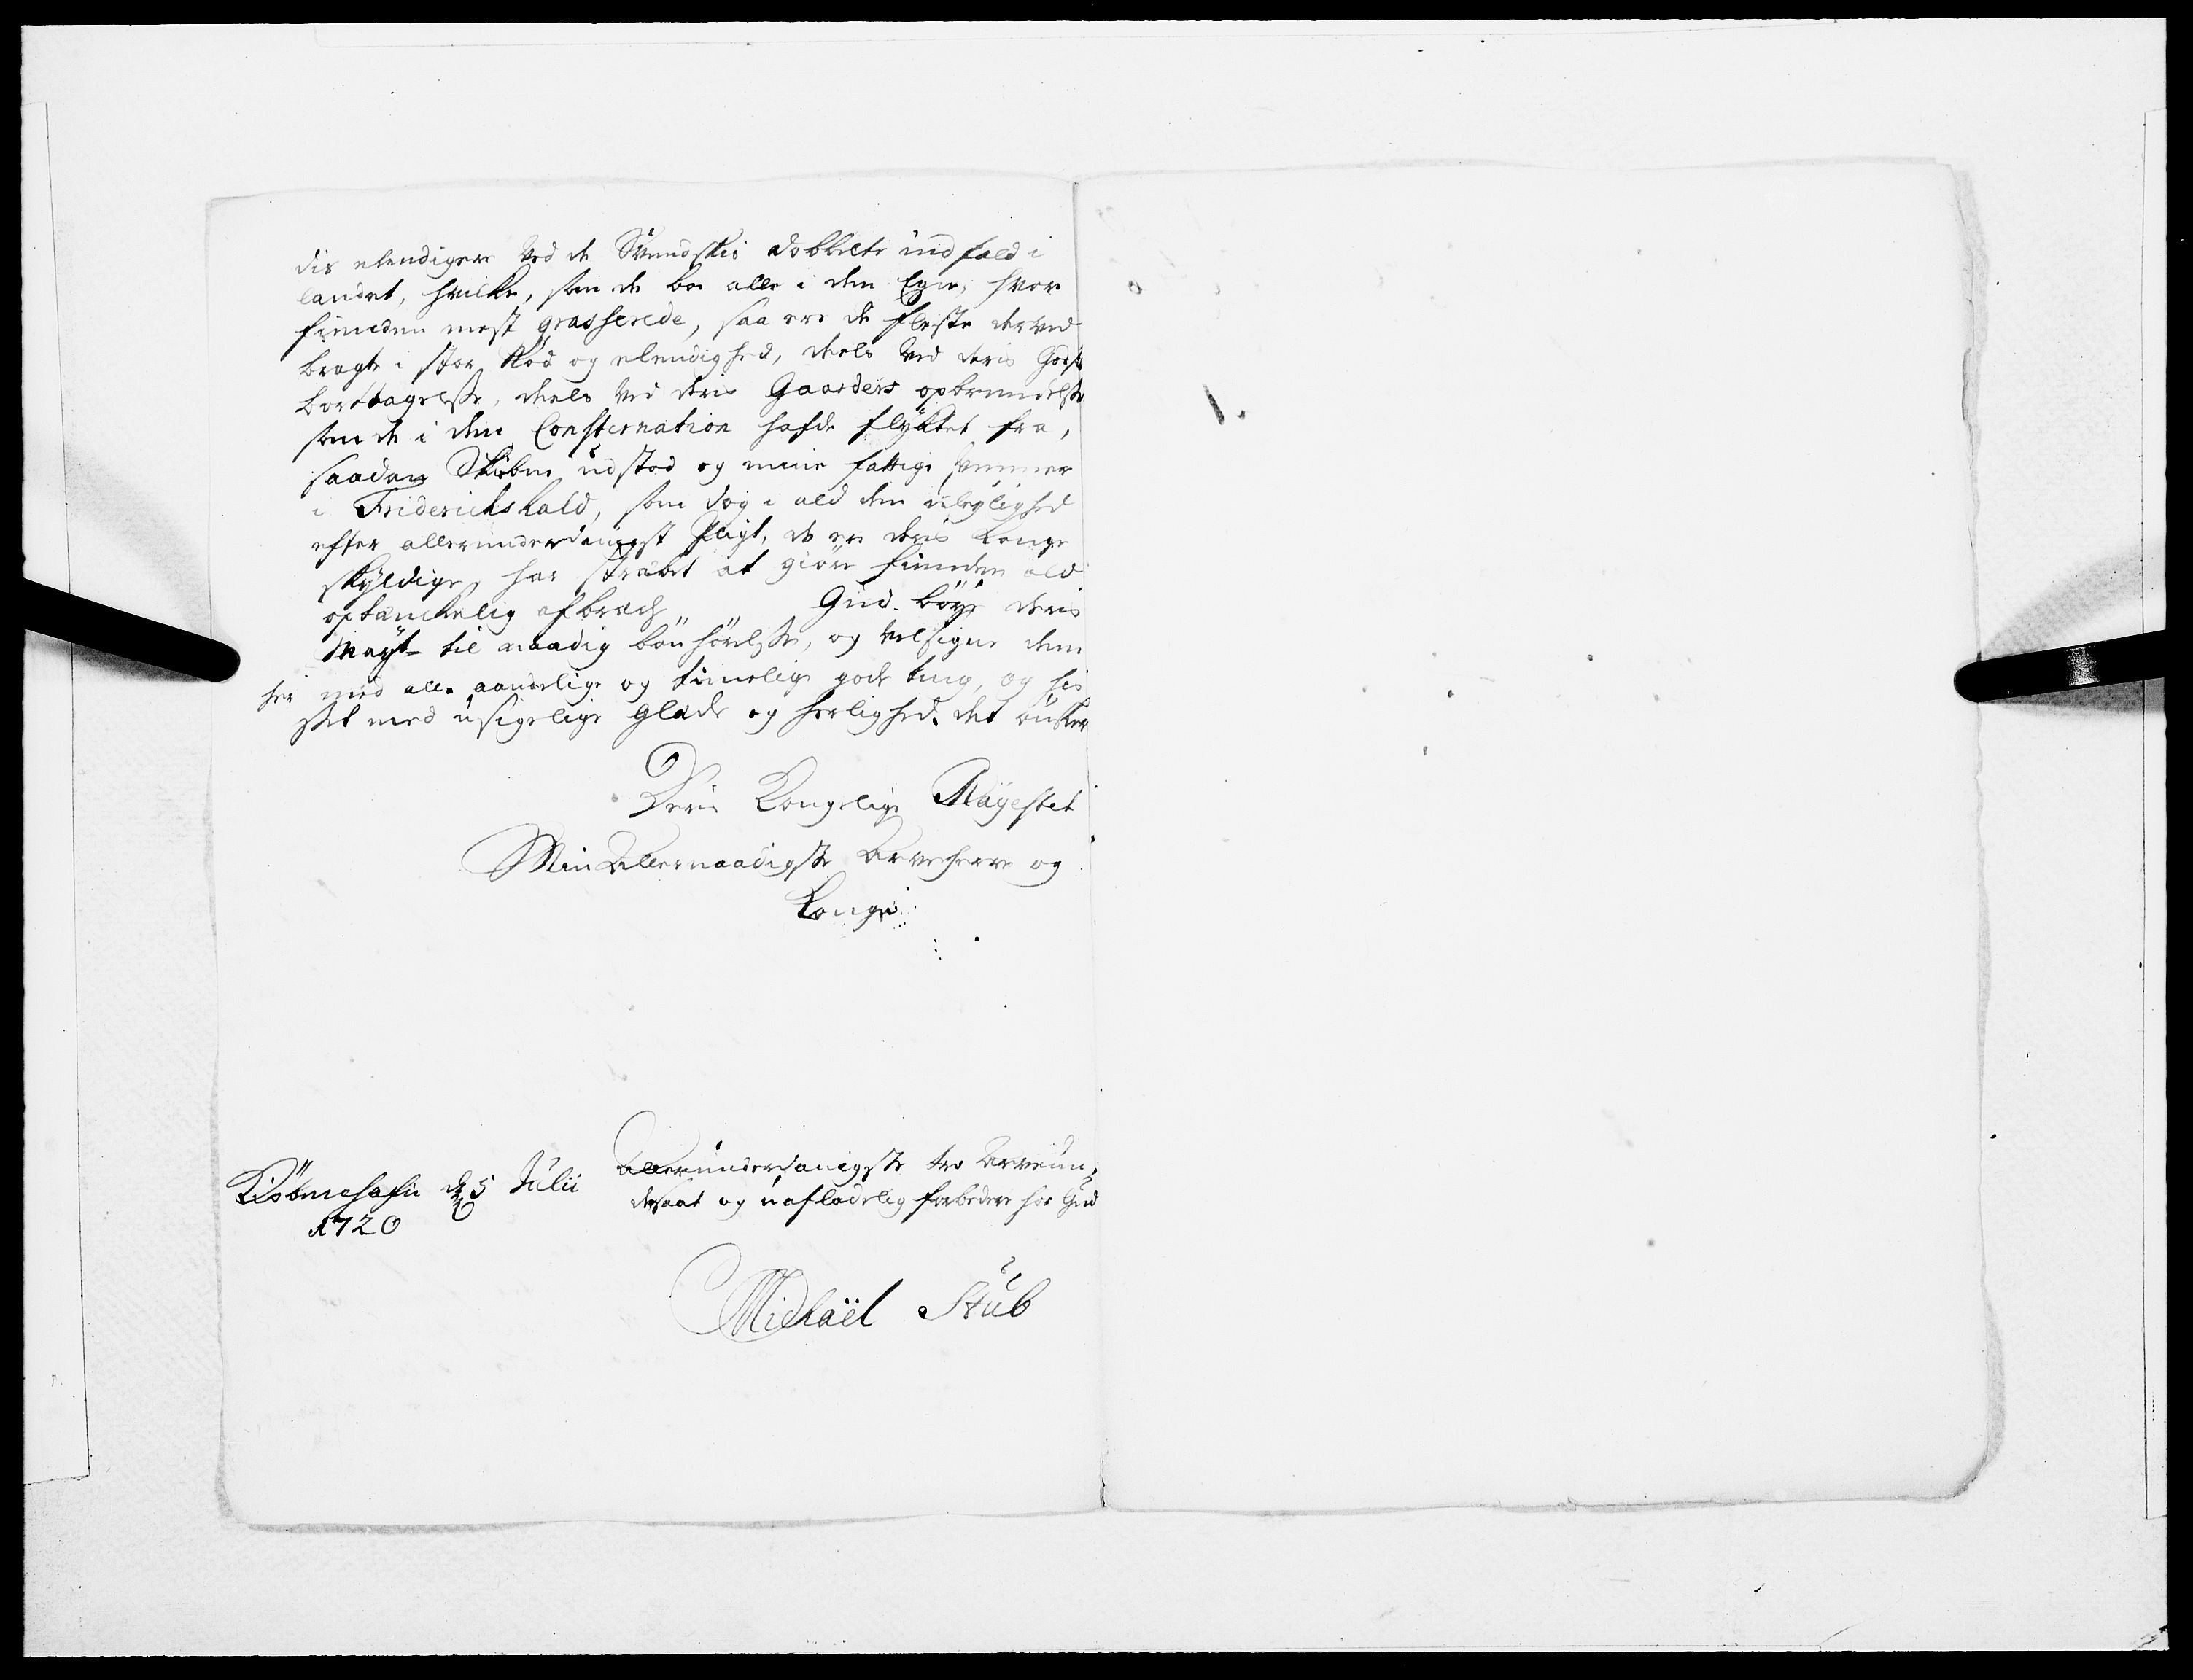 dis elendigere Ved de Svendskis dobbelte indfald i
landet, hvilke, som de boe alle i den Egn, hvor
fienden mest grasserede, saa ere de fleste derved
bragte i stor Nød og elendighed, deels Ved deris Gods
borttagelsse, deels Ved deris Gaarders opbrendelsse
som de i den Consternation hafde flyktet fra,
saadan Skiebne udstod og mine fattige Venner
i Friderichshald, som dog i ald den ulyglighed
efter allerunderdanigst Pligt, de ere deris Konge
skyldige, har stræbt at giøre fienden ald
optænckelig afbræch Gud bøye deris
Mayt til naadig bønhørelsse, og Velsigne dem
her med alle aandelige og timelige gode ting, og his
set med usigelige Glæde og herlighed. det ønsker
Deris Kongelige Mayestet
Min Allernaadigste Arveherre og
Konge
Kiøbenehafn d. 5 Julii
1720
Allerunderdanigste tro Arveun,
dersaat og uafladelig forbedere hos Gud
Michaël Stub